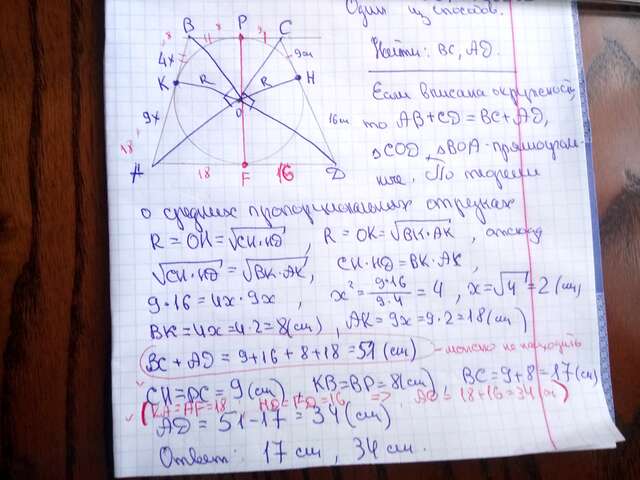 Один из способов.
Найти: BC, AD.
B 8 P 9 C
8 4x 9см
K R R H
O
9x 16см
18
A 18 F 16 D
Если вписана окружность,
то AB+CD=BC+AD,
△COD, △BOA - прямоуголь-
ные. По теореме
о средних пропорциональных отрезках
R = OH = √CH·HD , R = OK = √BK·AK , откуда
√CH·HD = √BK·AK , CH·HD = BK·AK ,
9·16 = 4x·9x , x² = 9·16/9·4 = 4 , x = √4 = 2 (см)
BK = 4x = 4·2 = 8(см) , AK = 9x = 9·2 = 18(см)
BC + AD = 9+16+8+18 = 51 (см) - можно не находить
CH = PC = 9 (см) , KB = BP = 8(см) , BC = 9+8 = 17(см)
(KA = AF = 18 HD = FD = 16 => AD = 18+16 = 34 см)
AD = 51-17 = 34 (см)
Ответ: 17 см , 34 см.